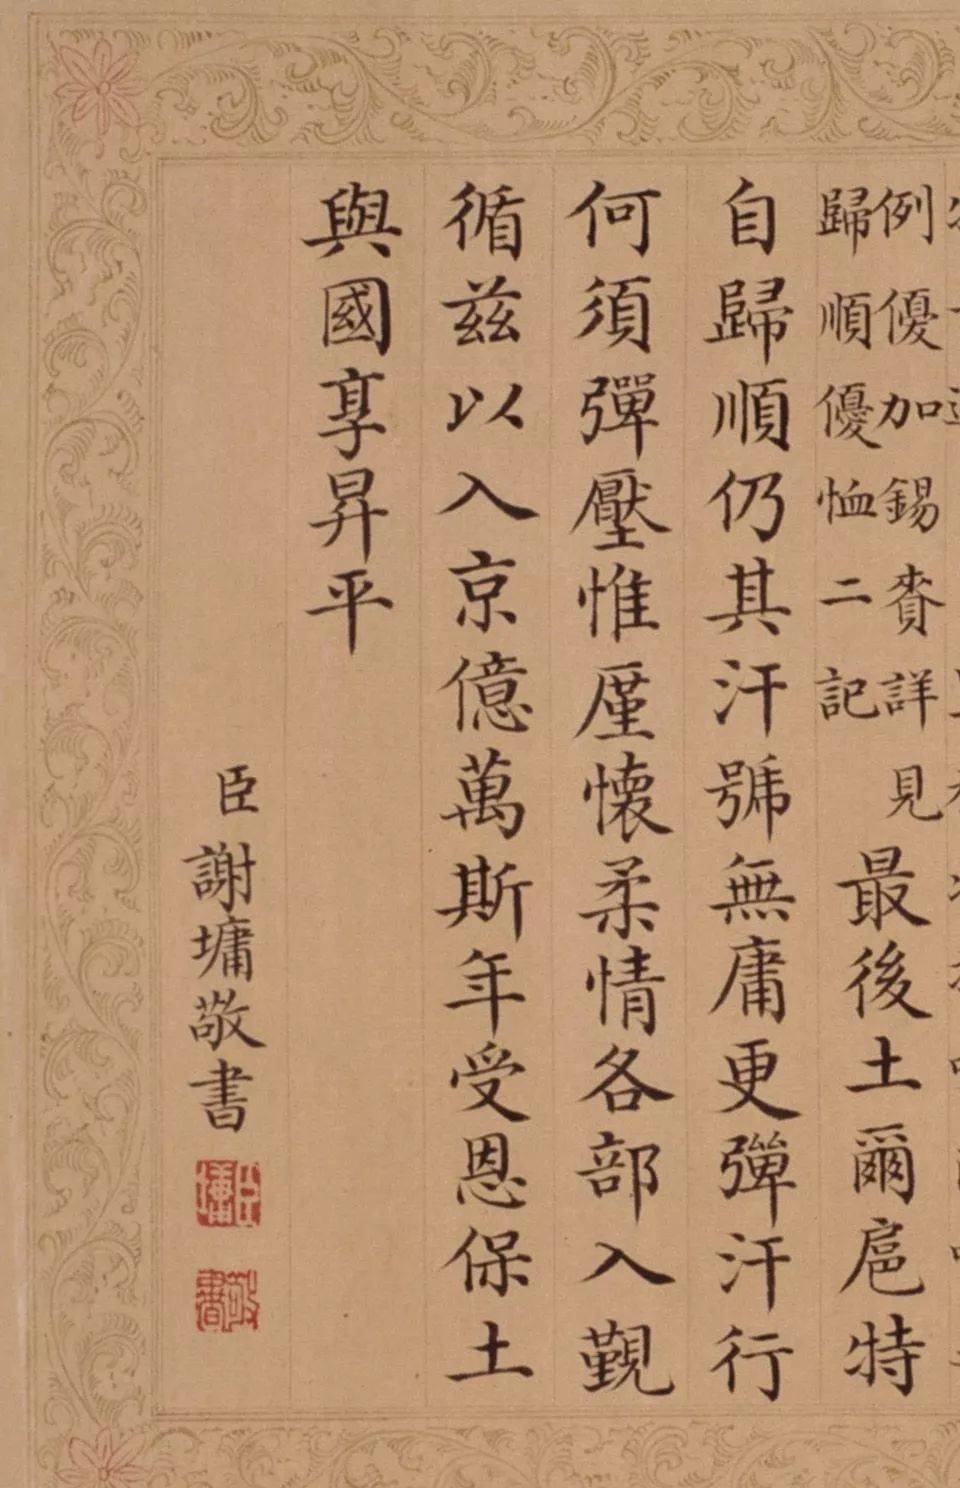 例優加錫賚詳見
歸順優恤二記
最後土爾扈特
自歸順仍其汗號無庸更彈汗行
何須彈壓惟厪懷柔情各部入覲
循茲以入京億萬斯年受恩保土
與國享昇平
臣謝墉敬書
臣墉
敬書